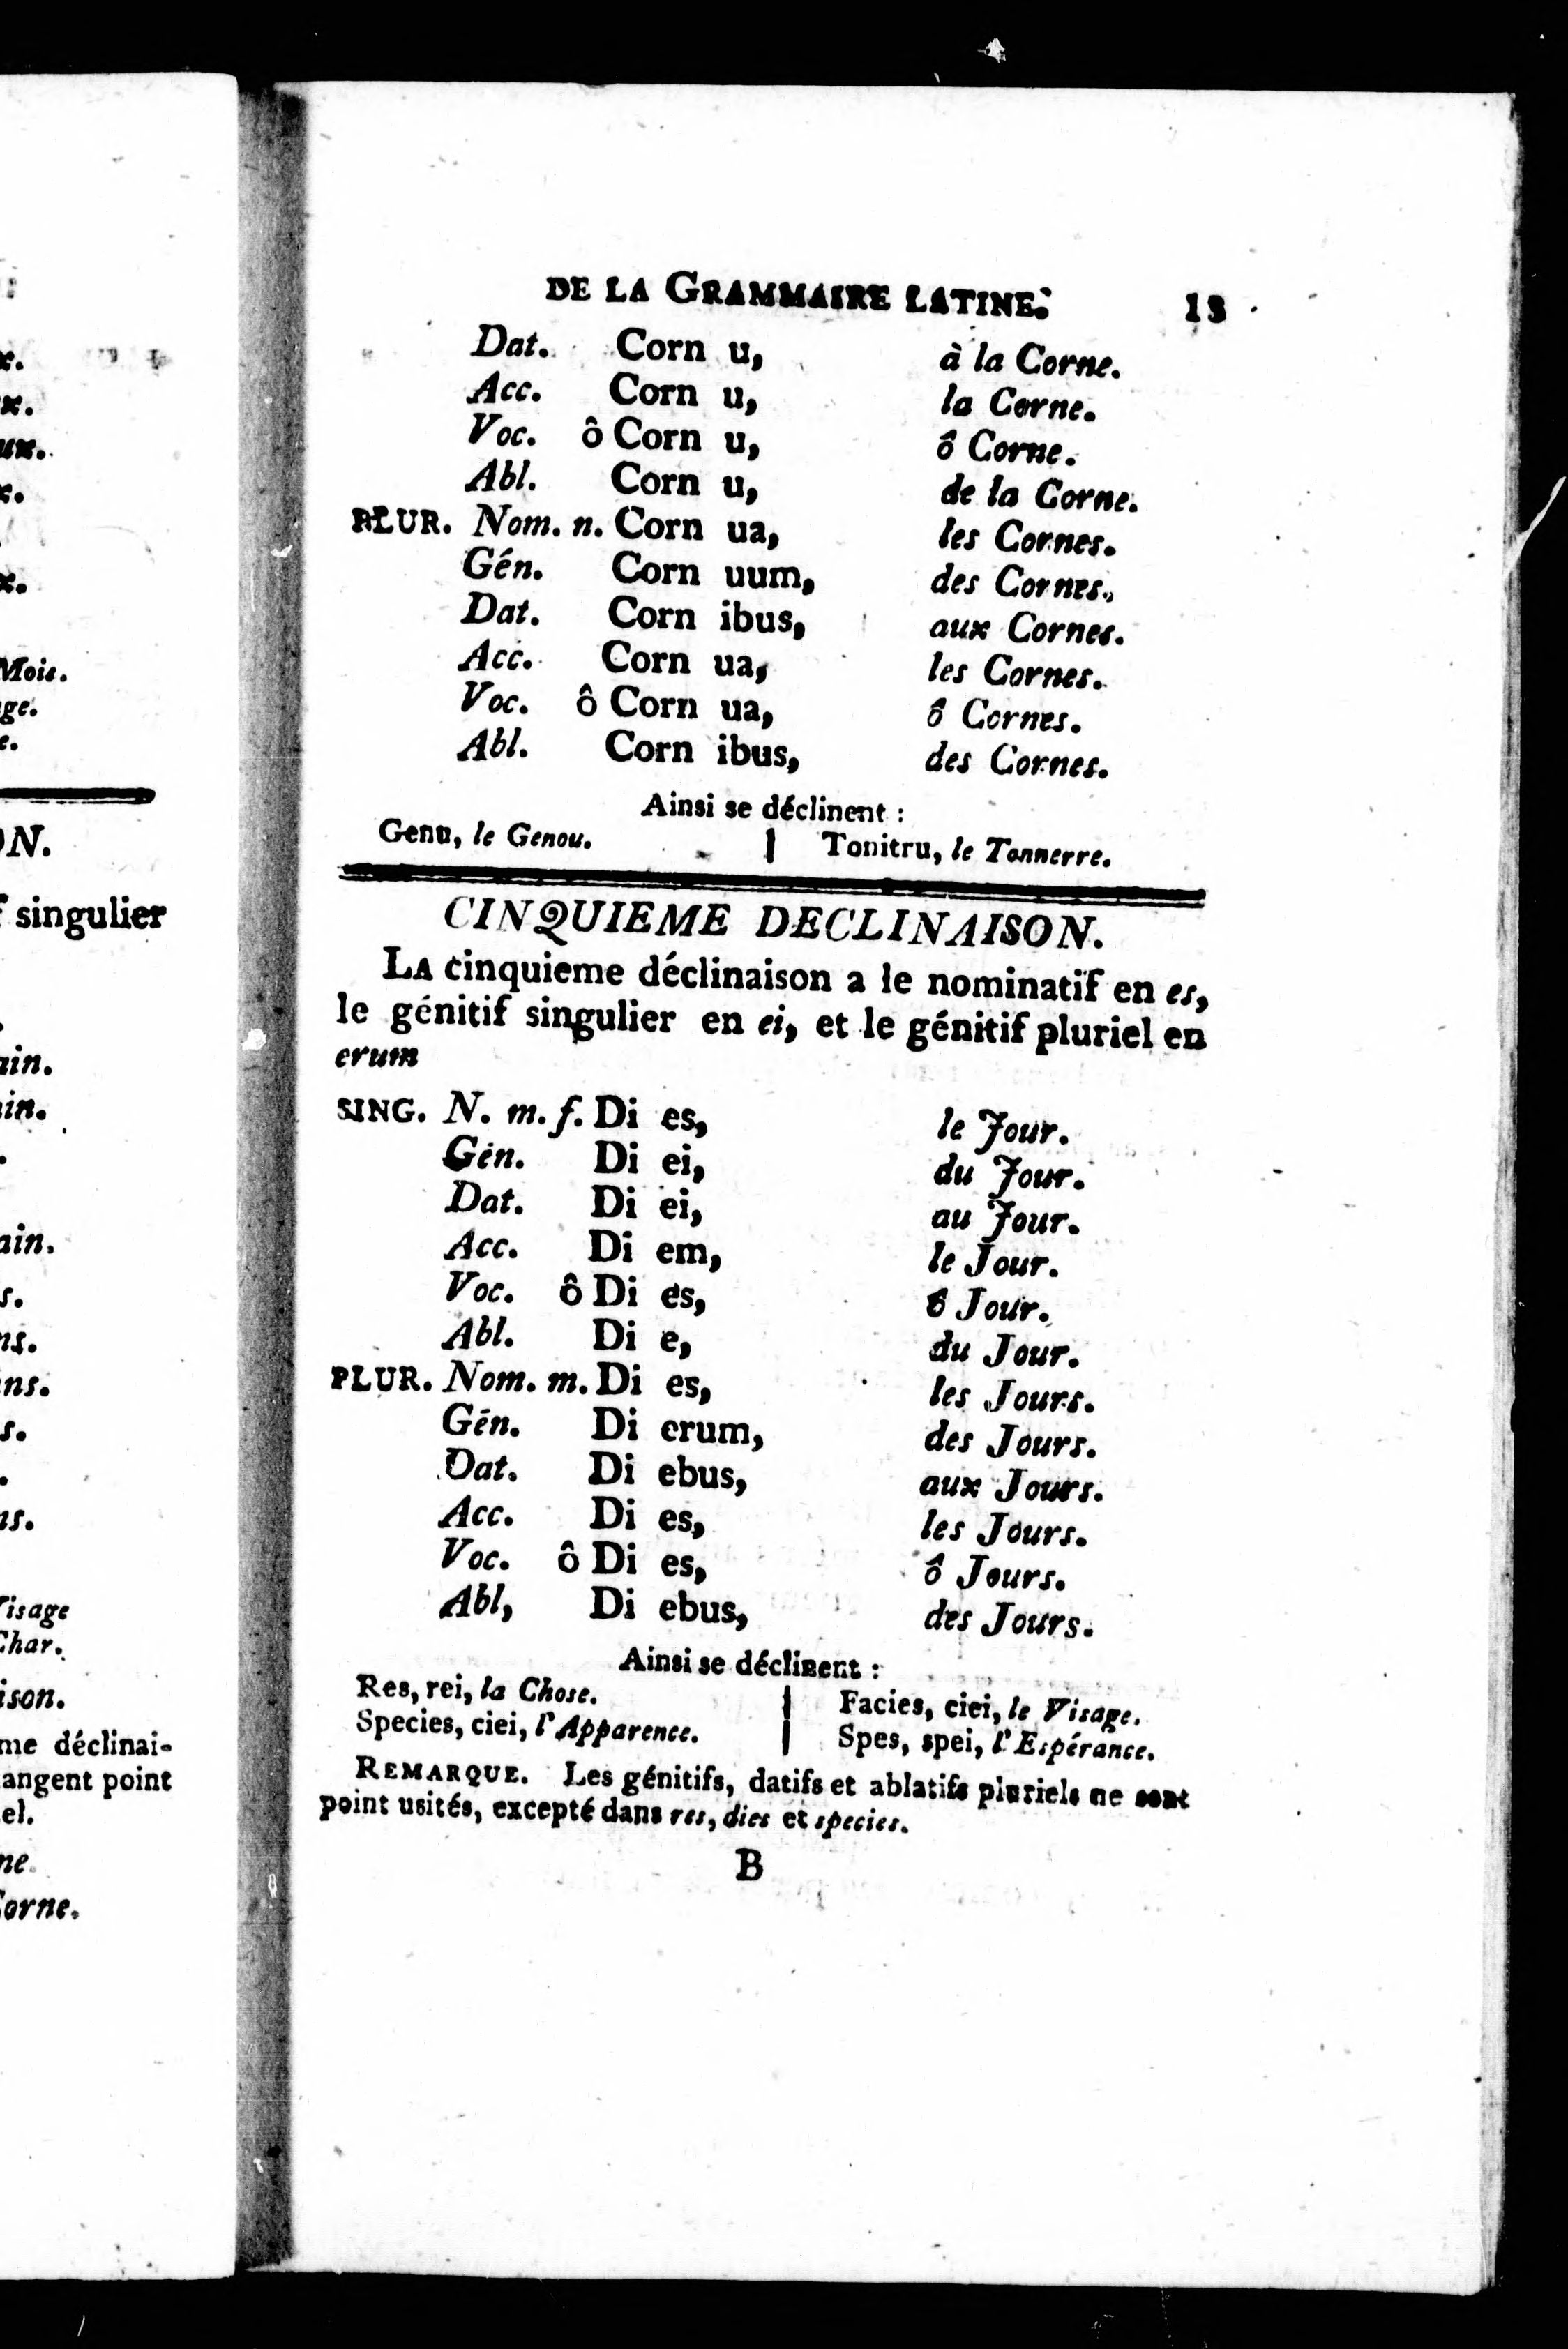 DE LA GRAMMAIRE LATINE. 13
Dat. Corn u, à la Corne.
Acc. Corn u, la Corne.
Voc. ô Corn u, ô Corne.
Abl. Corn u, de la Corne.
PLUR. Nom. n. Corn ua, les Cornes.
Gén. Corn uum, des Cornes.
Dat. Corn ibus, aux Cornes.
Acc. Corn ua, les Cornes.
Voc. ô Corn ua, ô Cornes.
Abl. Corn ibus, des Cornes.
Ainsi se déclinent :
Genu, le Genou. | Tonitru, le Tonnerre.
CINQUIEME DECLINAISON.
LA cinquieme déclinaison a le nominatif en es,
le génitif singulier en ei, et le génitif pluriel en
erum
SING. N. m. f. Di es, le Jour.
Gén. Di ei, du Jour.
Dat. Di ei, au Jour.
Acc. Di em, le Jour.
Voc. ô Di es, ô Jour.
Abl. Di e, du Jour.
PLUR. Nom. m. Di es, les Jours.
Gén. Di erum, des Jours.
Dat. Di ebus, aux Jours.
Acc. Di es, les Jours.
Voc. ô Di es, ô Jours.
Abl, Di ebus, des Jours.
Ainsi se déclinent :
Res, rei, la Chose. | Facies, ciei, le Visage.
Species, ciei, l'Apparence. | Spes, spei, l'Espérance.
REMARQUE. Les génitifs, datifs et ablatifs pluriels ne sont
point usités, excepté dans res, dies et species.
B
Mois.
ge.
e.
ON.
singulier
ain.
in.
ain.
s.
ns.
ns.
s.
ns.
Visage
Char.
ison.
me déclinai-
angent point
el.
ne
Corne.